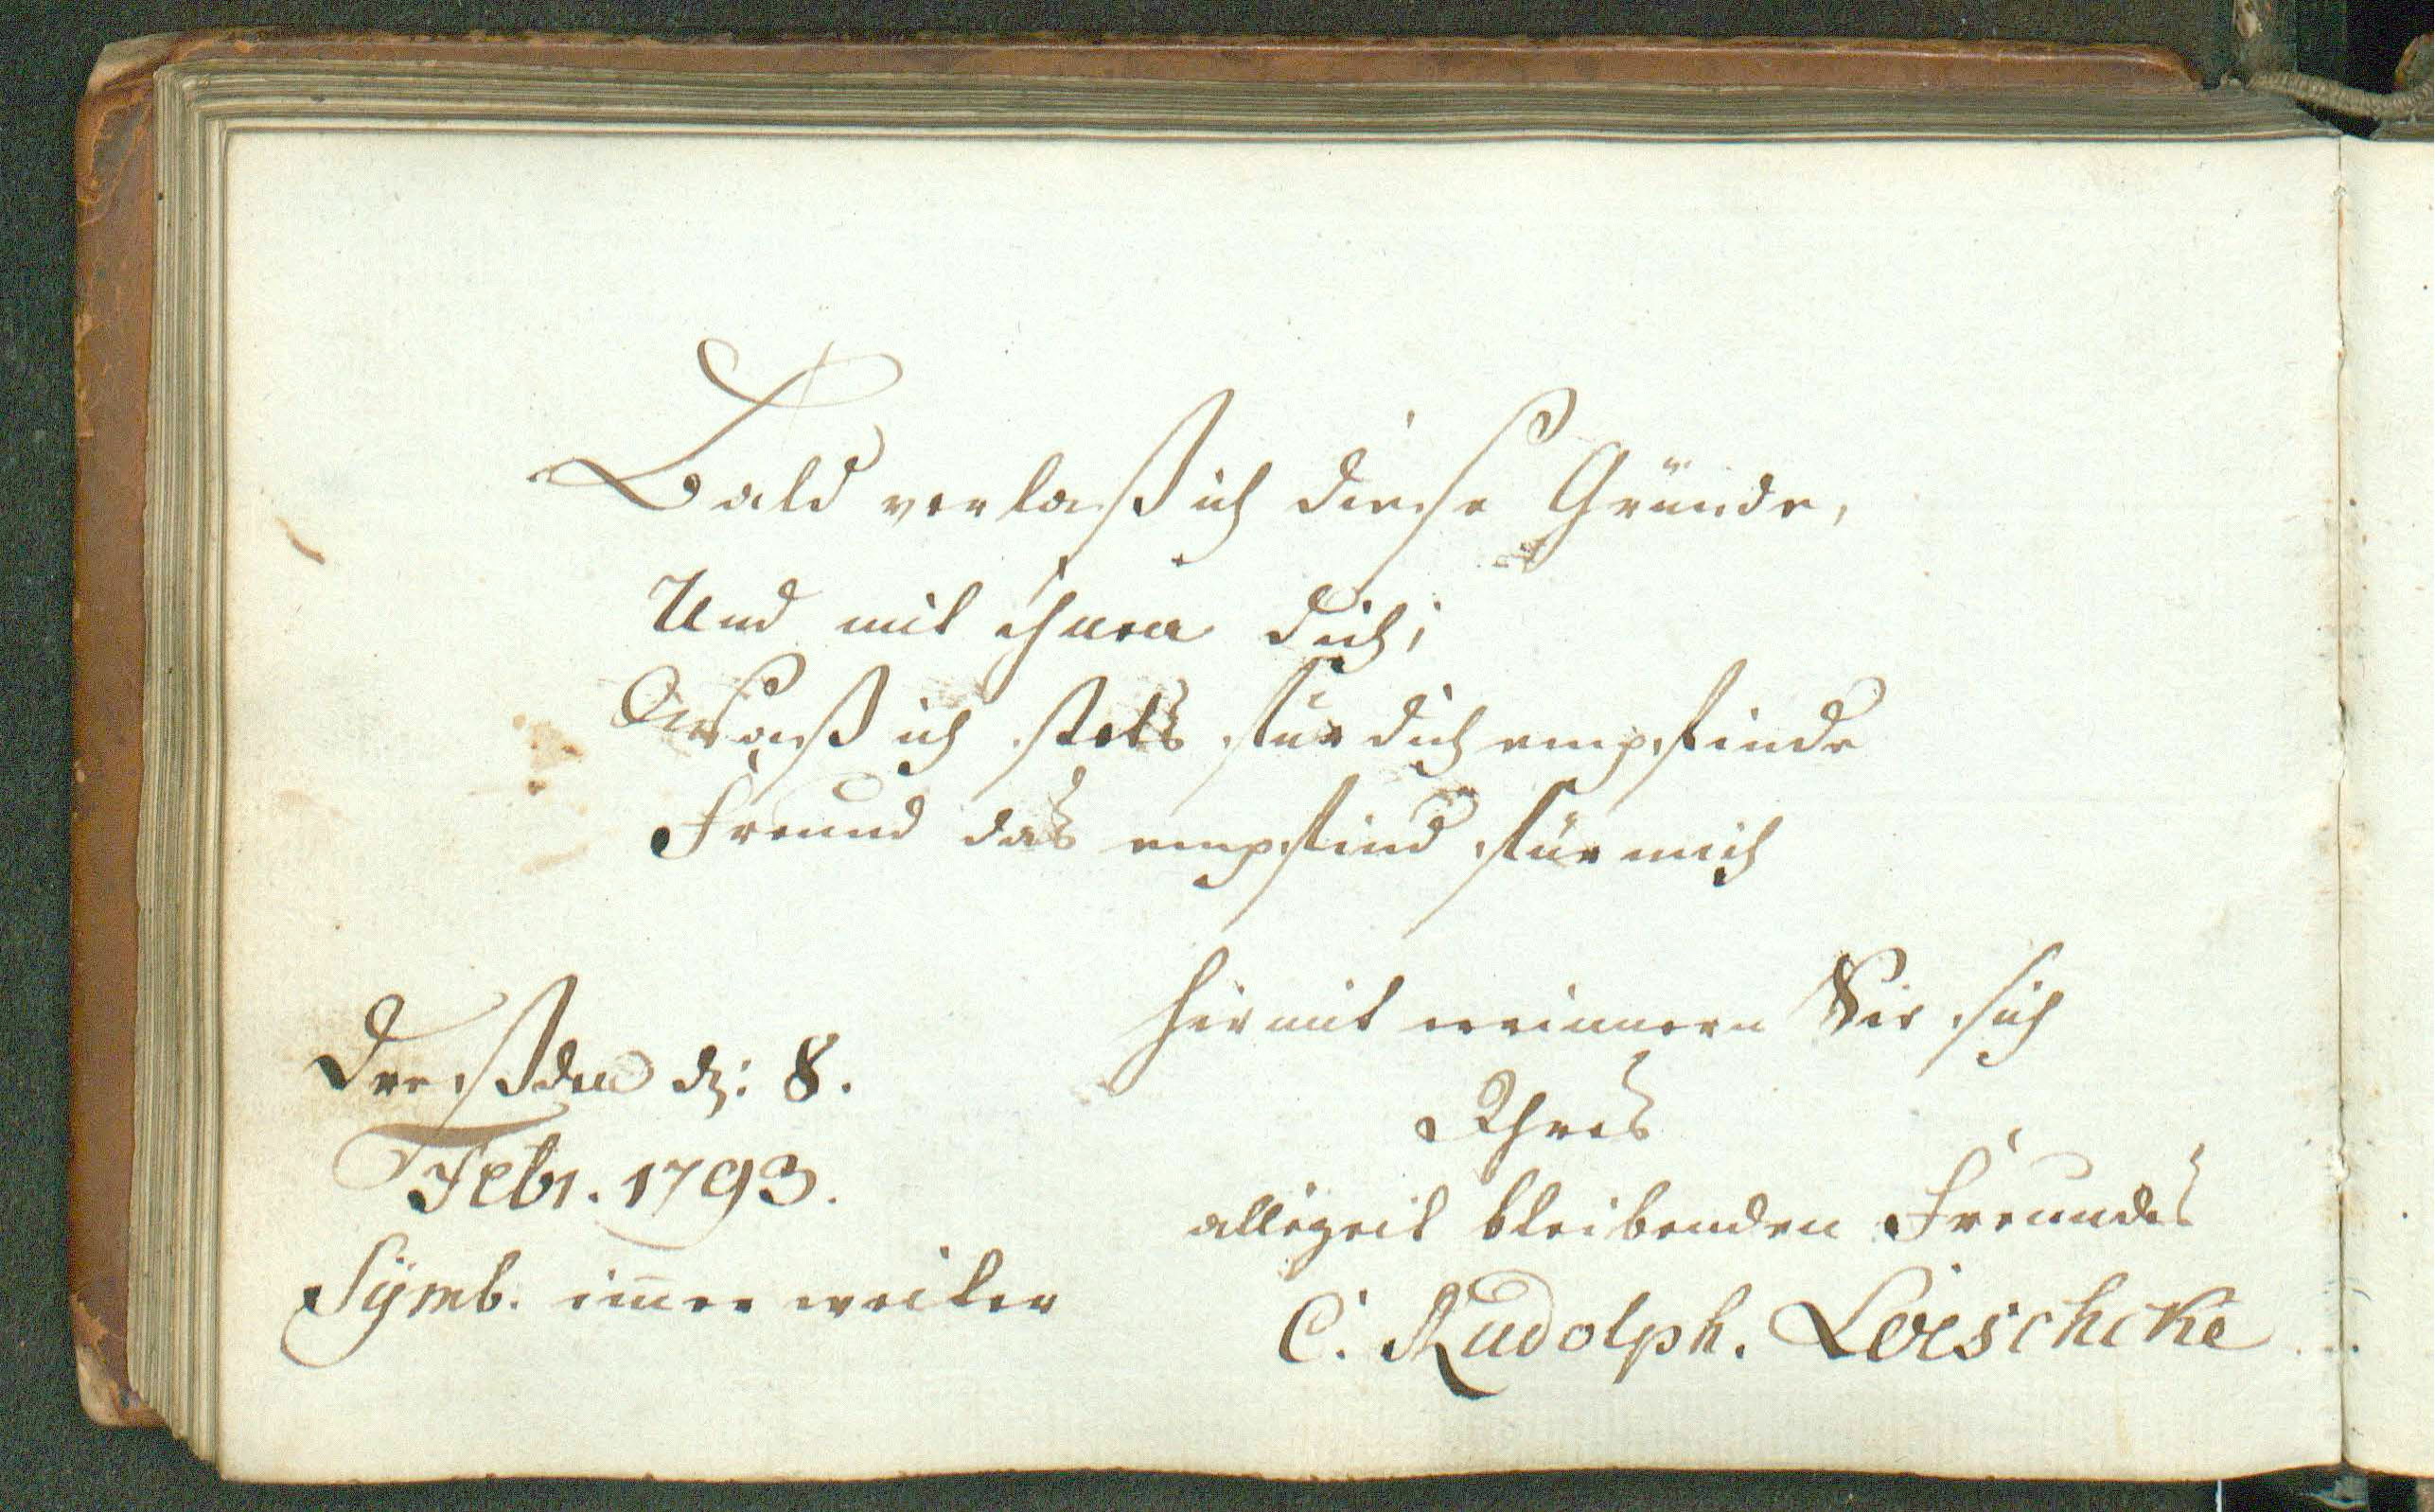 Bald verlaß ich diese Gründe,
Und mit ihnen dich;
Waß ich stets für dich empfinde
Freund das empfind für mich
Hiermit erinnern Sie sich
Ihres
allezeit bleibenden Freundes
C. Rudolph. Loeschcke
Dreßden d: 8.
Febr. 1793.
Sÿmb. im̅er weiter